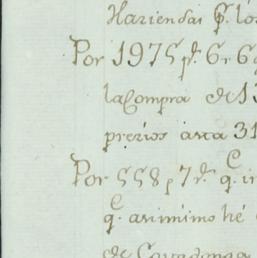 Haziendas q.e lo
Por 1975 p.s 6 r 6
la Compra de 13
prezios asta 31
Por 558 p 7 r.s q.e in
q.e asimimo hé
de Covadonga